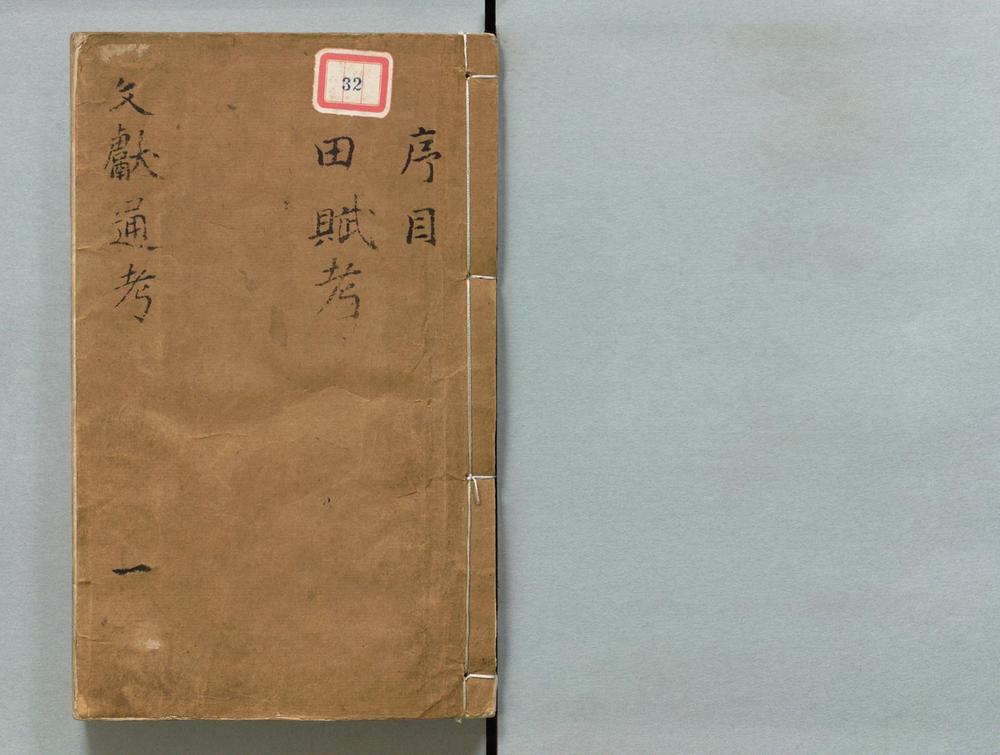 32
序目
田賦考
文獻通考
一